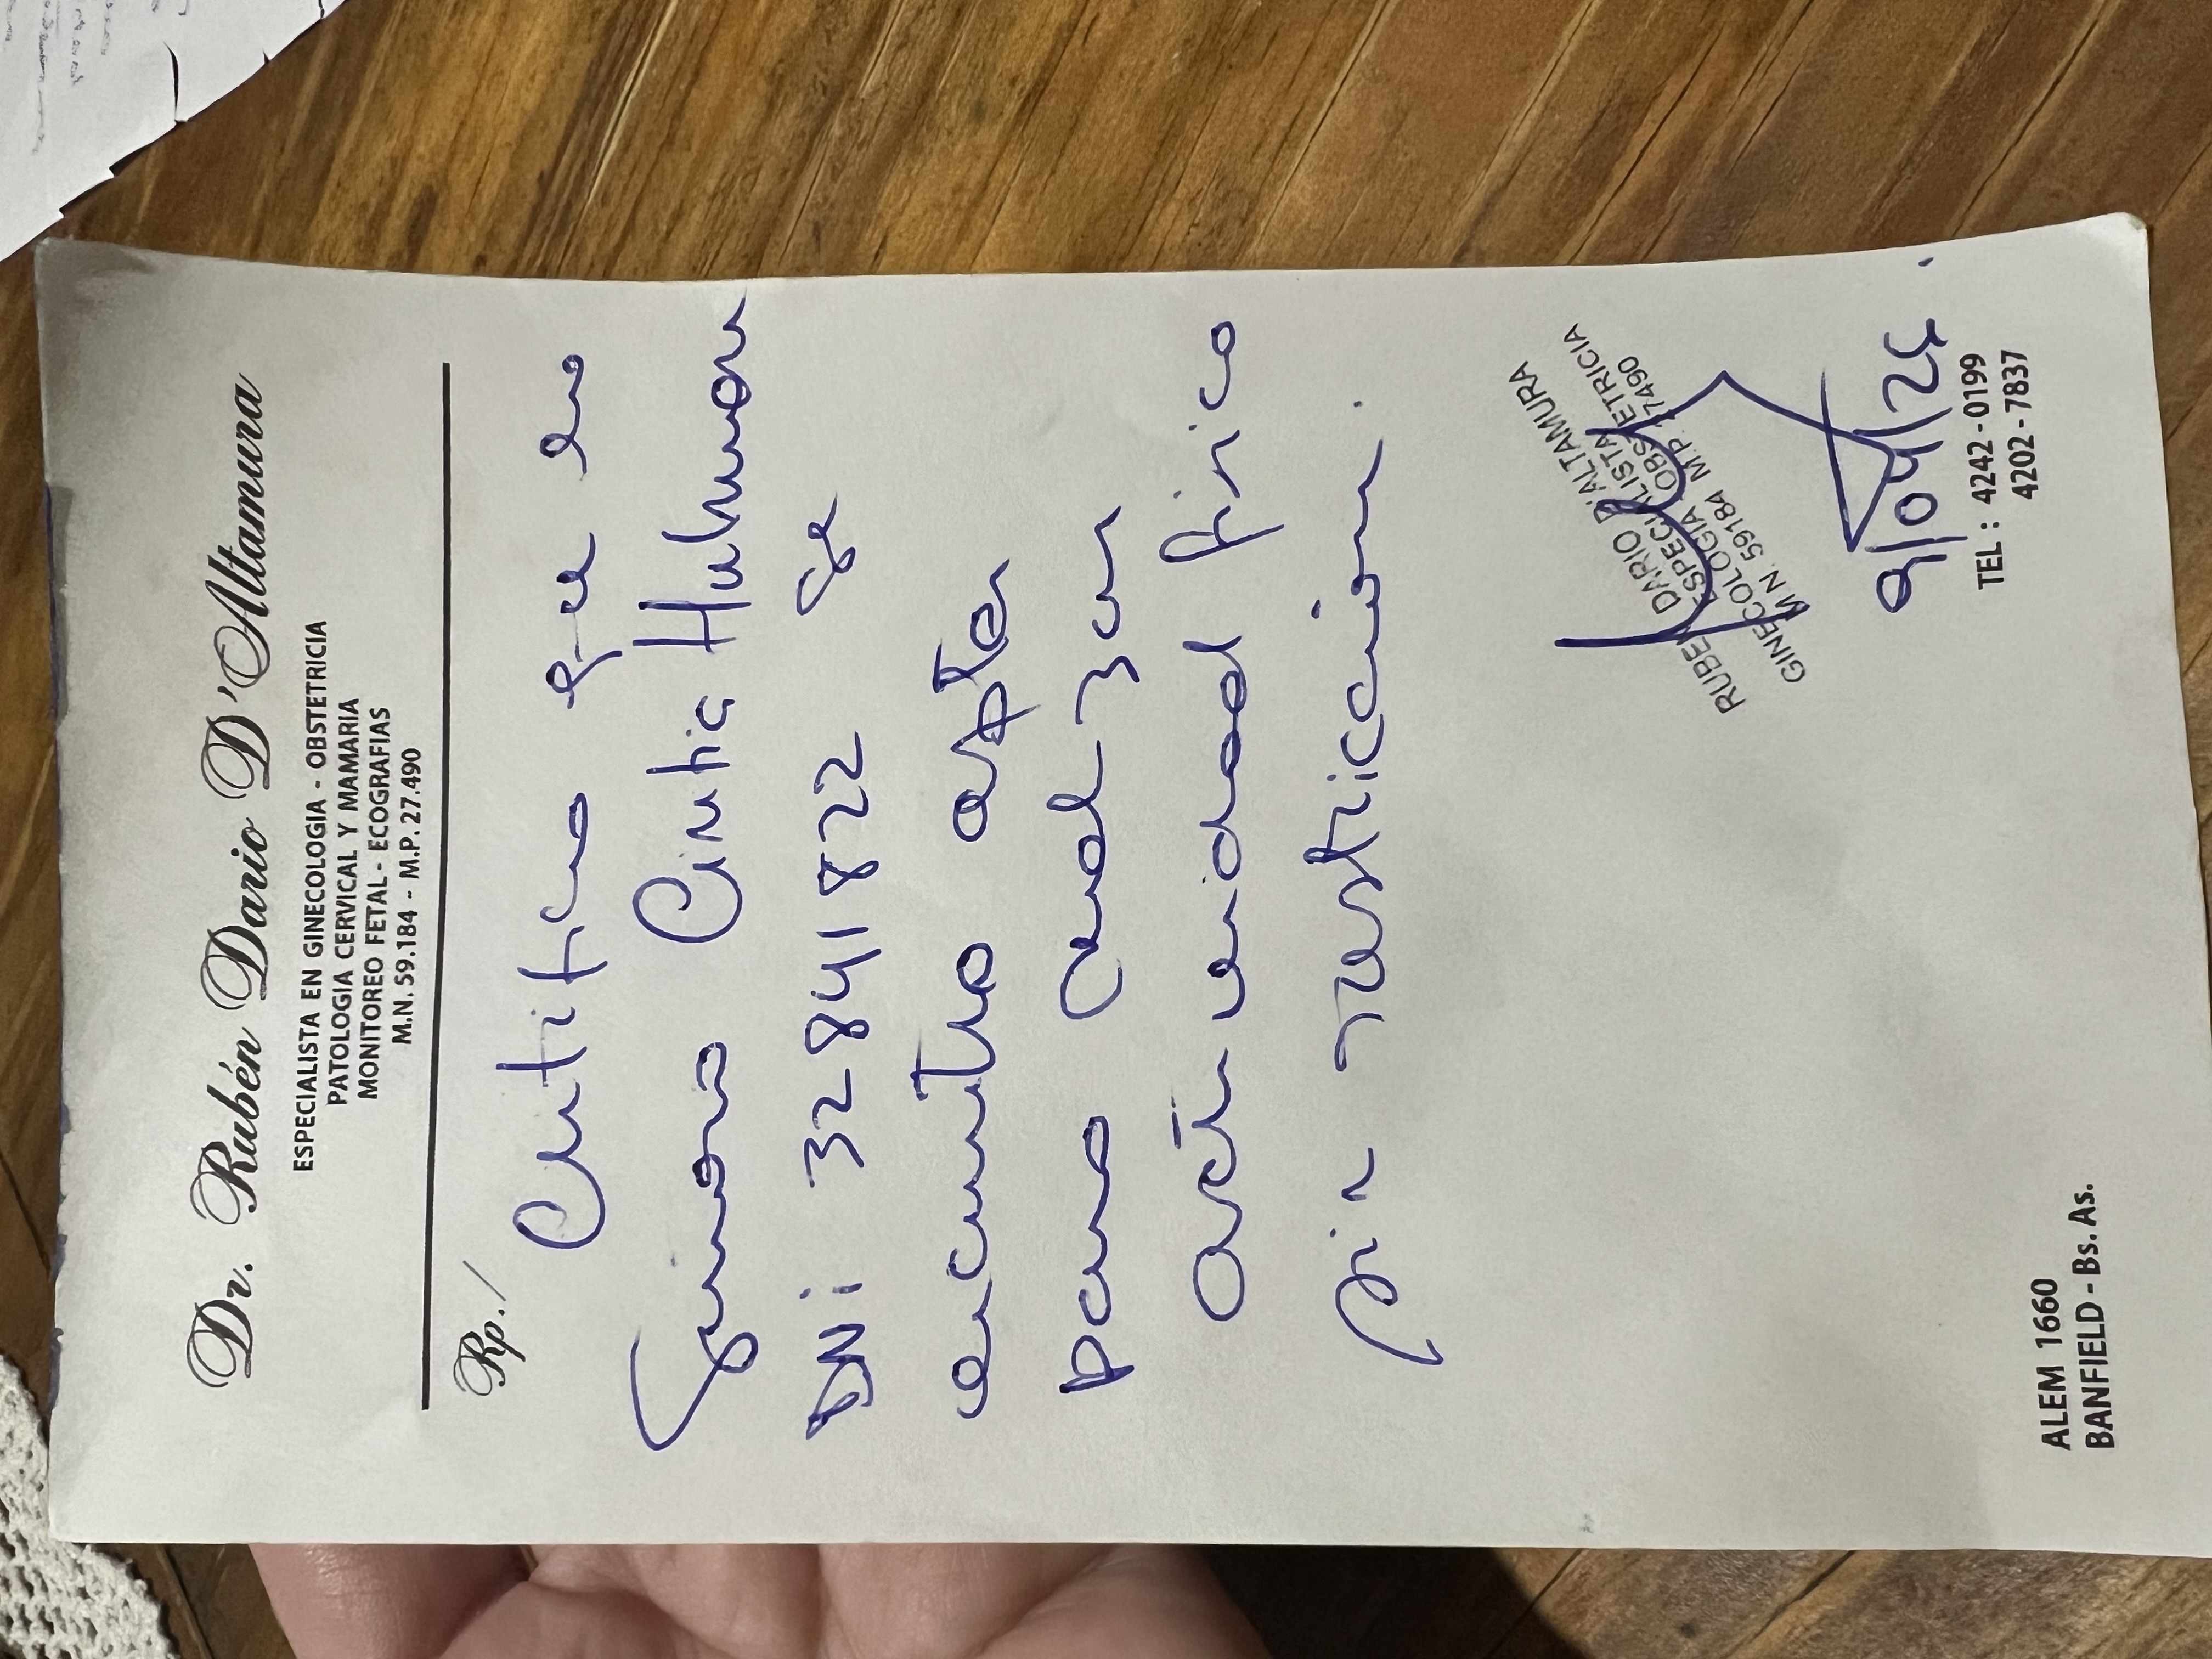 Dr. Rubén Dario D'Altamura
ESPECIALISTA EN GINECOLOGIA - OBSTETRICIA
PATOLOGIA CERVICAL Y MAMARIA
MONITOREO FETAL - ECOGRAFIAS
M.N. 59.184 - M.P. 27.490
Rp./
Certifico que la
Señora Cintia
DNI: 32841822 se
encuentra apta
para realizar
actividad física
sin restricción.
RUBEN DARIO D'ALTAMURA
ESPECIALISTA
GINECOLOGIA OBSTETRICIA
M.N. 59184 M.P. 27490
9/04/26.
TEL : 4242 - 0199
4202 - 7837
ALEM 1660
BANFIELD - Bs. As.